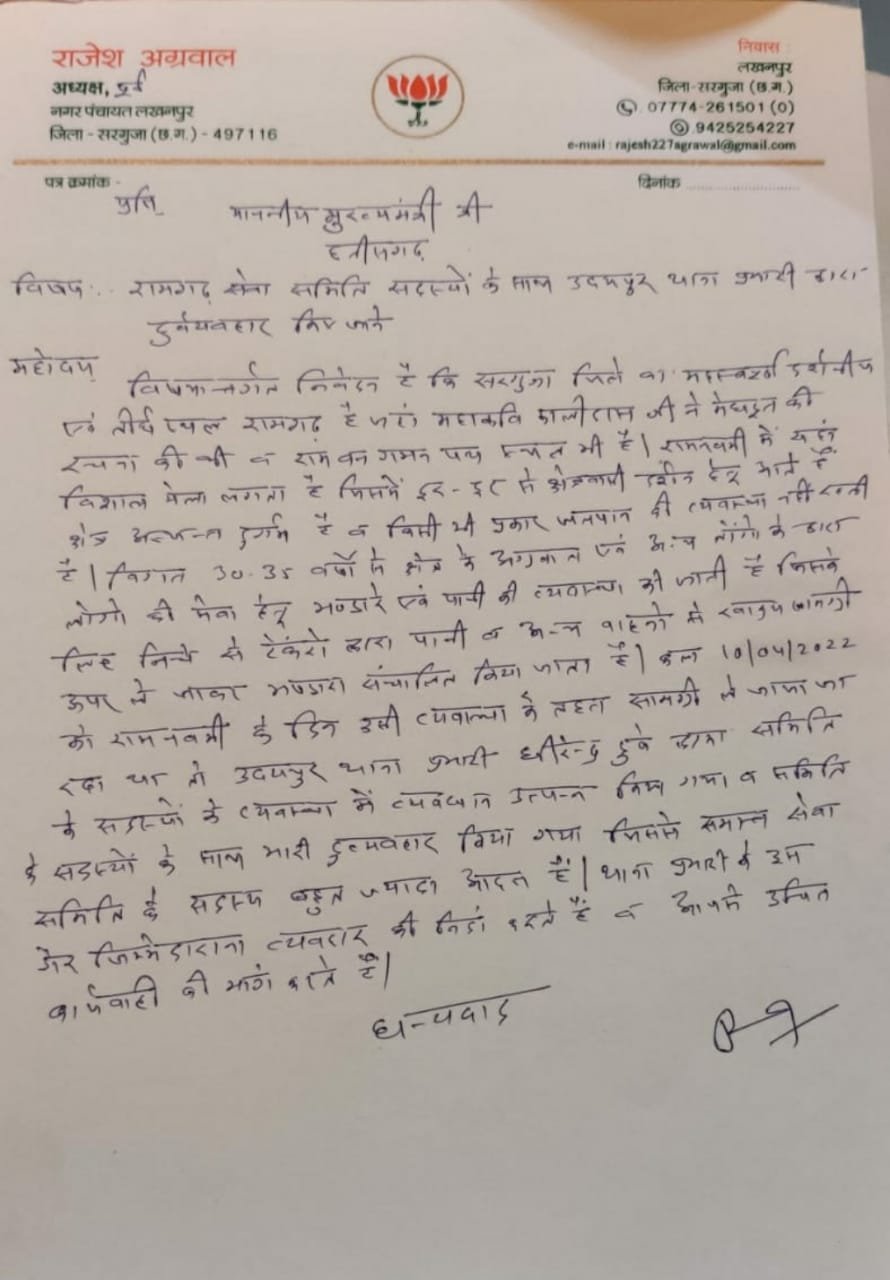 राजेश अग्रवाल
अध्यक्ष, पूर्व
नगर पंचायत लखनपुर
जिला - सरगुजा (छ.ग.) - 497116
निवास :
लखनपुर
जिला-सरगुजा (छ.ग.)
07774-261501 (O)
9425254227
e-mail : rajesh227agrawal@gmail.com
पत्र क्रमांक -
दिनांक ........................
प्रति,
माननीय मुख्यमंत्री जी
छत्तीसगढ़
विषय :- रामगढ़ सेवा समिति सदस्यों के साथ उदयपुर थाना प्रभारी द्वारा
दुर्व्यवहार किए जाने
महोदय,
विषयान्तर्गत निवेदन है कि सरगुजा जिले का महत्वपूर्ण दर्शनीय
एवं तीर्थ स्थल रामगढ़ है जहां महाकवि कालीदास जी ने मेघदूत की
रचना की थी व राम वन गमन पथ स्थित भी है। रामनवमी में यहां
विशाल मेला लगता है जिसमें दूर-दूर से क्षेत्रवासी दर्शन हेतु आते हैं
क्षेत्र अत्यन्त दुर्गम है व किसी भी प्रकार जलपान की व्यवस्था नहीं रहती
है। विगत 30-35 वर्षों से क्षेत्र के अग्रवाल एवं अन्य लोगों के द्वारा
लोगो की सेवा हेतु भण्डारे एवं पानी की व्यवस्था की जाती है जिसके
लिए निचे से टेंकरो द्वारा पानी व अन्य वाहनो से खाद्य सामग्री
ऊपर ले जाकर भण्डारा संचालित किया जाता है। कल 10/04/2022
को रामनवमी के दिन उसी व्यवस्था के तहत सामग्री ले जाया जा
रहा था तो उदयपुर थाना प्रभारी धीरेन्द्र दुबे द्वारा समिति
के सदस्यों के व्यवस्था में व्यवधान उत्पन्न किया गया व समिति
के सदस्यों के साथ भारी दुव्यवहार किया गया जिससे समस्त सेवा
समिति के सदस्य बहुत ज्यादा आहत हैं। थाना प्रभारी के इस
गैर जिम्मेदाराना व्यवहार की निंदा करते हैं व आपसे उचित
कार्यवाही की मांग करते है।
धन्यवाद